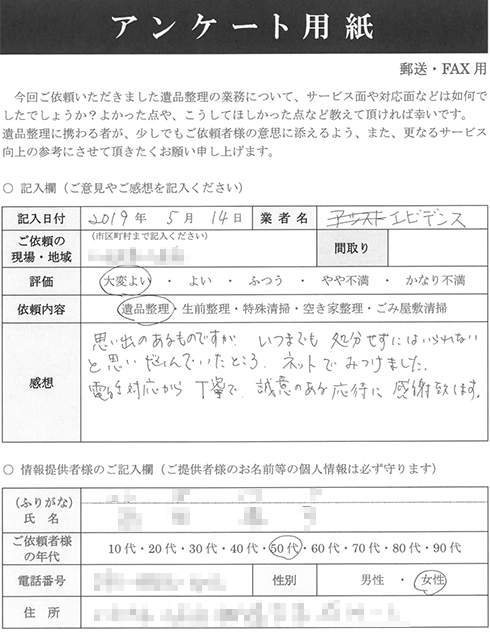 アンケート用紙
郵送・FAX 用
今回ご依頼いただきました遺品整理の業務について、サービス面や対応面などは如何で
したでしょうか？よかった点や、こうしてほしかった点など教えて頂ければ幸いです。
遺品整理に携わる者が、少しでもご依頼者様の意思に添えるよう、また、更なるサービス
向上の参考にさせて頂きたくお願い申し上げます。
○ 記入欄（ご意見やご感想を記入ください）
記入日付 2019 年 5 月 14 日 業者名 エビデンス
ご依頼の
現場・地域 (市区町村まで記入ください) 間取り
評価 大変よい ・ よい ・ ふつう ・ やや不満 ・ かなり不満
依頼内容 遺品整理・生前整理・特殊清掃・空き家整理・ごみ屋敷清掃
感想
思い出のあるものですが、いつまでも処分せずにはいられない
と思い悩んでいたところ、ネットでみつけました。
電話対応から丁寧で、誠意のある応待に感謝致します。
○ 情報提供者様のご記入欄（ご提供者様のお名前等の個人情報は必ず守ります）
(ふりがな)
氏 名
ご依頼者様
の年代 10 代・20 代・30 代・40 代・50 代・60 代・70 代・80 代・90 代
電話番号 性別 男性 ・ 女性
住 所